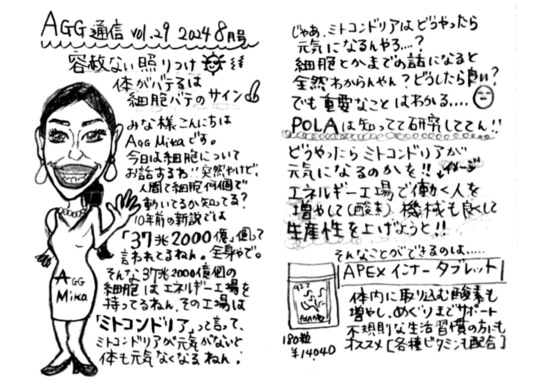 AGG通信 vol.29 2024 8月号
容赦ない照りつけ
体がバテるは
細胞バテのサイン
みな様こんにちは
AGG Mikaです。
今日は細胞について
お話するわ!!突然やけど、
人間て細胞何個で
動いてるか知ってる?
10年前の新説では
「37兆2000億」個って
言われてるねん。全身やで。
そんな37兆2000億個の
細胞はエネルギー工場を
持ってるねん、その工場は
「ミトコンドリア」って言って、
ミトコンドリアが元気がないと
体も元気なくなるねん!
AGG
Mika
じゃあ、ミトコンドリアはどうやったら
元気になるんやろ....?
細胞とかまでの話になると
全然わからんやん?どうしたら良い?
でも重要なことはわかる....
POLAは知ってて研究しててん!!
どうやったらミトコンドリアが
元気になるのかを!! イメージ
エネルギー工場で働く人を
増やして(酸素)機械も良くして
生産性を上げようと!!
そんなことができるのは......
APEXインナータブレット
180粒
¥14040
体内に取り込む酸素も
増やし、めぐりまでサポート
不規則な生活習慣の方にも
オススメ[各種ビタミンも配合]